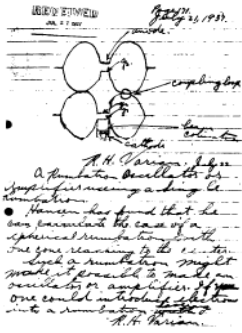 RECEIVED
JUL 27 1937
July 21, 1937.
anode
coupling loop
cathode
R. H. Varian, July 22
A Rumbatron Oscillator or
amplifier using a single
rumbatron.
Hansen has found that he
can calculate the case of a
spherical rumbatron with
one cone reaching to the center
Such a rumbatron might
make it possible to make an
oscillator or amplifier. If
one could introduce electrons
into a rumbatron
R. H. Varian.